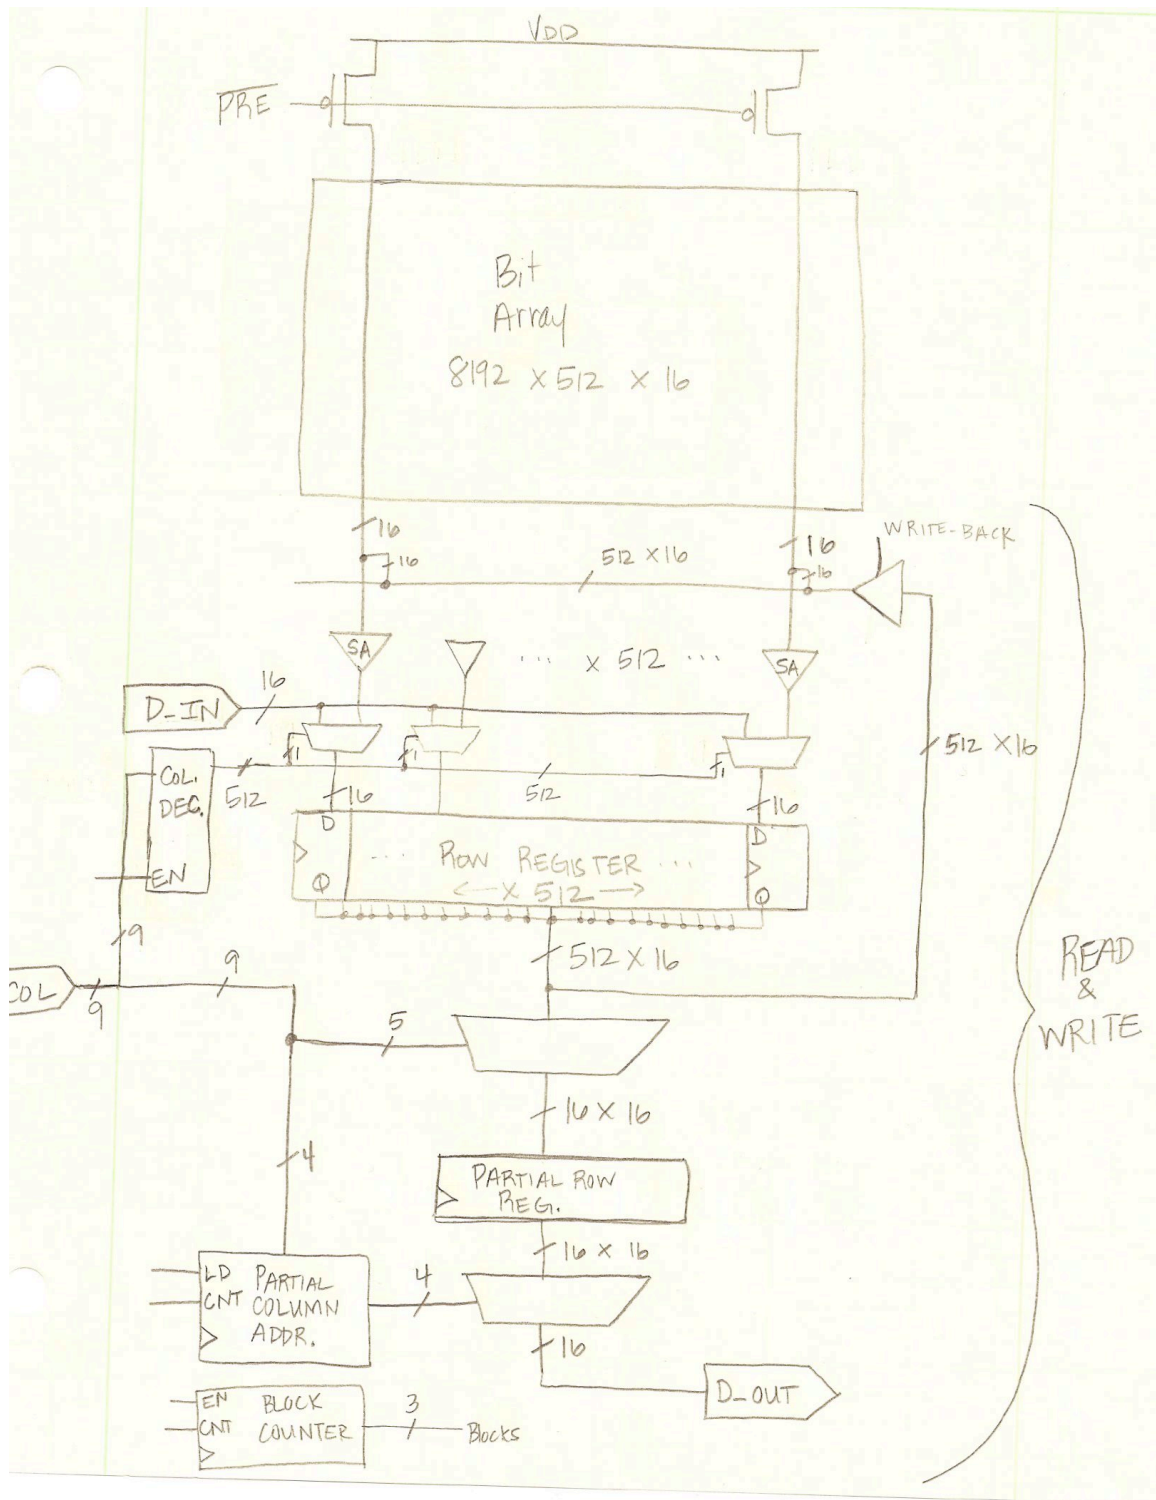 VDD
PRE
Bit
Array
8192 X 512 X 16
16
16
WRITE-BACK
512 X 16
16
16
SA
... X 512 ...
SA
16
D_IN
1
1
1
512 X 16
COL.
DEC.
EN
512
512
16
16
D
D
... ROW REGISTER ...
X 512
Q
Q
9
9
512 X 16
COL
9
READ
&
WRITE
5
16 X 16
4
PARTIAL ROW
REG.
16 X 16
LD
CNT
PARTIAL
COLUMN
ADDR.
4
16
D_OUT
EN
CNT
BLOCK
COUNTER
3
Blocks